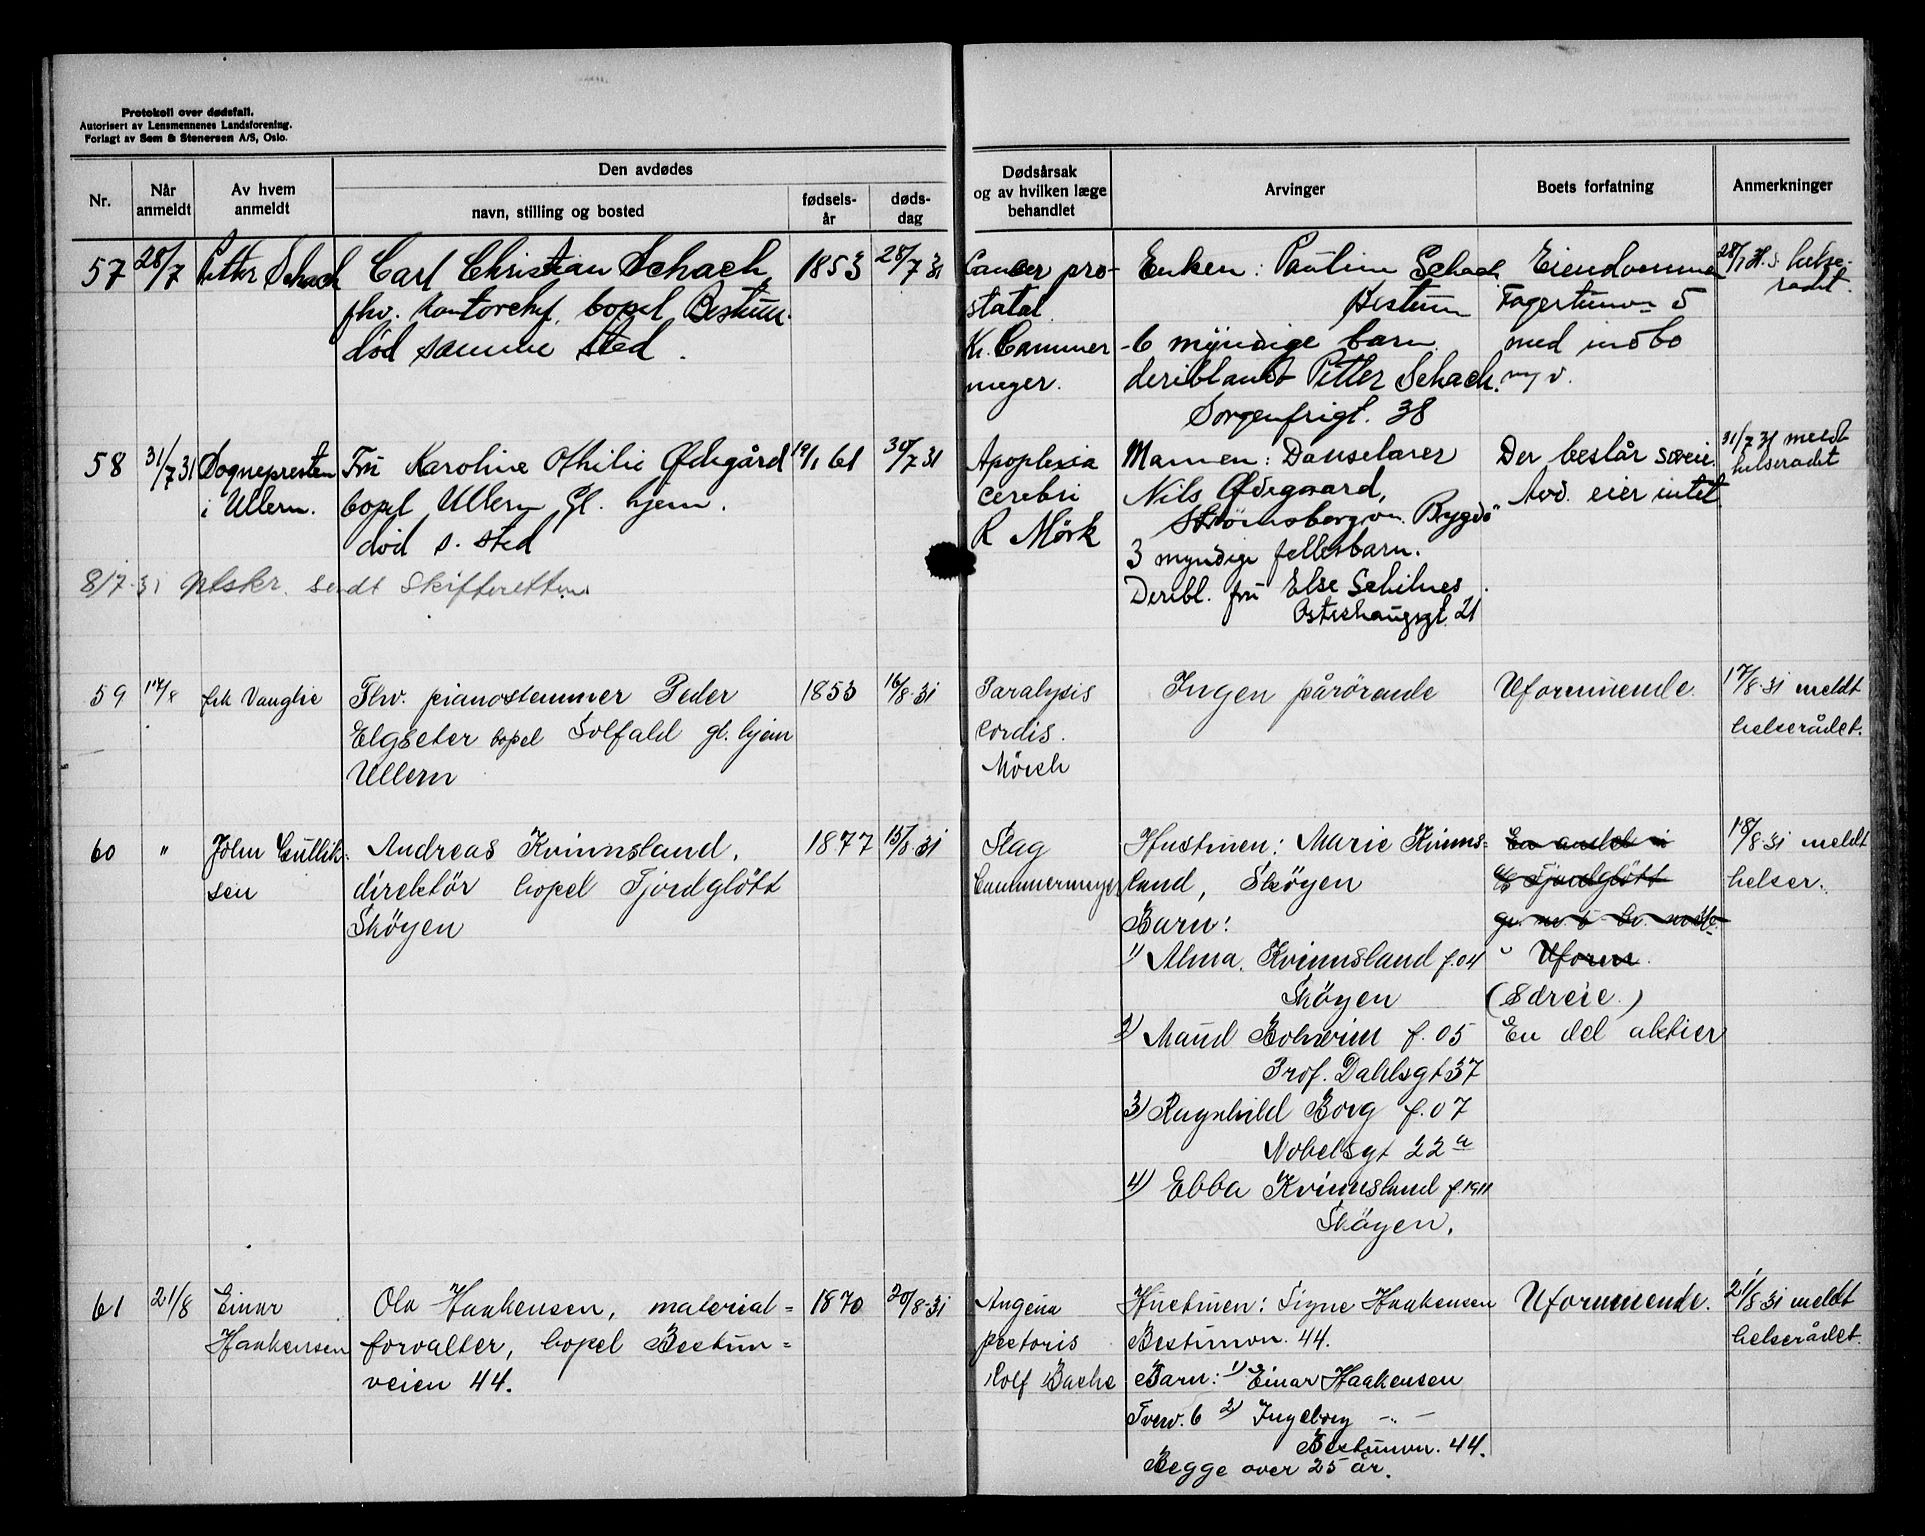 Protokoll over dødsfall.
Autorisert av Lensmennenes Landsforening.
Forlagt av Sem & Stenersen A/S, Oslo.
Nr.
Når anmeldt
Av hvem anmeldt
Den avdødes
navn, stilling og bosted
fødsels-år
døds-dag
Dødsårsak og av hvilken læge behandlet
Arvinger
Boets forfatning
Anmerkninger
57 28/7 Petter Schach
Carl Christian Schach
fhv. kontorchef, bopel Bestum
død samme sted.
1853 28/7 31
Cancer pro-
statal.
Kr. Cammer
meyer.
Enken: Pauline Schach
Bestum
6 myndige barn
deriblandt Petter Schach.
Sorgenfrigt. 38
Eiendommen
Fagertunvn 5
med indbo
m, v.
28/7 31. s. helse-
rådet.
58 31/7 31 Sognepresten
i Ullern.
Fru Karoline Othilie Ødegård
bopel Ullern Gl. hjem.
død s. sted
19/1 61 30/7 31
Apoplexia
cerebri
R Mörk
Mannen: Danselærer
Nils Ødegaard,
Strömsborgvn. Bygdö
3 myndige fellesbarn.
Deribl. fru Else Schilnes
Ostrehaugsgt. 21
Der består særeie.
Avd. eier intet
31/7 31 meldt
helserådet
8/7 31 utskr. sendt Skifteretten
59 17/8 frk Vanglie
Fhv. pianostemmer Peder
Elgseter bopel Solfald gl. hjem
Ullern
1853 16/8.31
Paralysis
cordis.
Mörch
Ingen pårørende
Uformuende.
17/8.31 meldt
helserådet.
60 " John Gullik-
sen
Andreas Kvinnsland,
direktör bopel Fjordglött
Sköyen
1877 15/8.31
Slag
Cammermeyer
Hustruen: Marie Kvinns-
land, Sköyen
Barn:
1) Alma Kvinnsland f.04
Sköyen
2) Maud Bolneim f. 05
Prof. Dahlsgt 37
3) Ragnhild Borg f. 07
Nobelsgt 22a
4) Ebba Kvinnsland f.1911
Sköyen.
En andel i
Fjordglött
Uform.
(Særeie.)
En del aktier
18/8.31 meldt
helser.
61 21/8 Einar
Haakensen
Ola Haakensen, material=
forvalter, bopel Bestum=
veien 44.
1870 20/8.31
Angina
pectoris
Rolf Bache
Hustruen: Signe Haakensen
Bestumvn. 44.
Barn: 1) Einar Haakensen
Tverv. 6 2) Ingeborg -"-
Bestumvn. 44.
Begge over 25 år.
Uformuende.
21/8.31 meldt
helserådet.